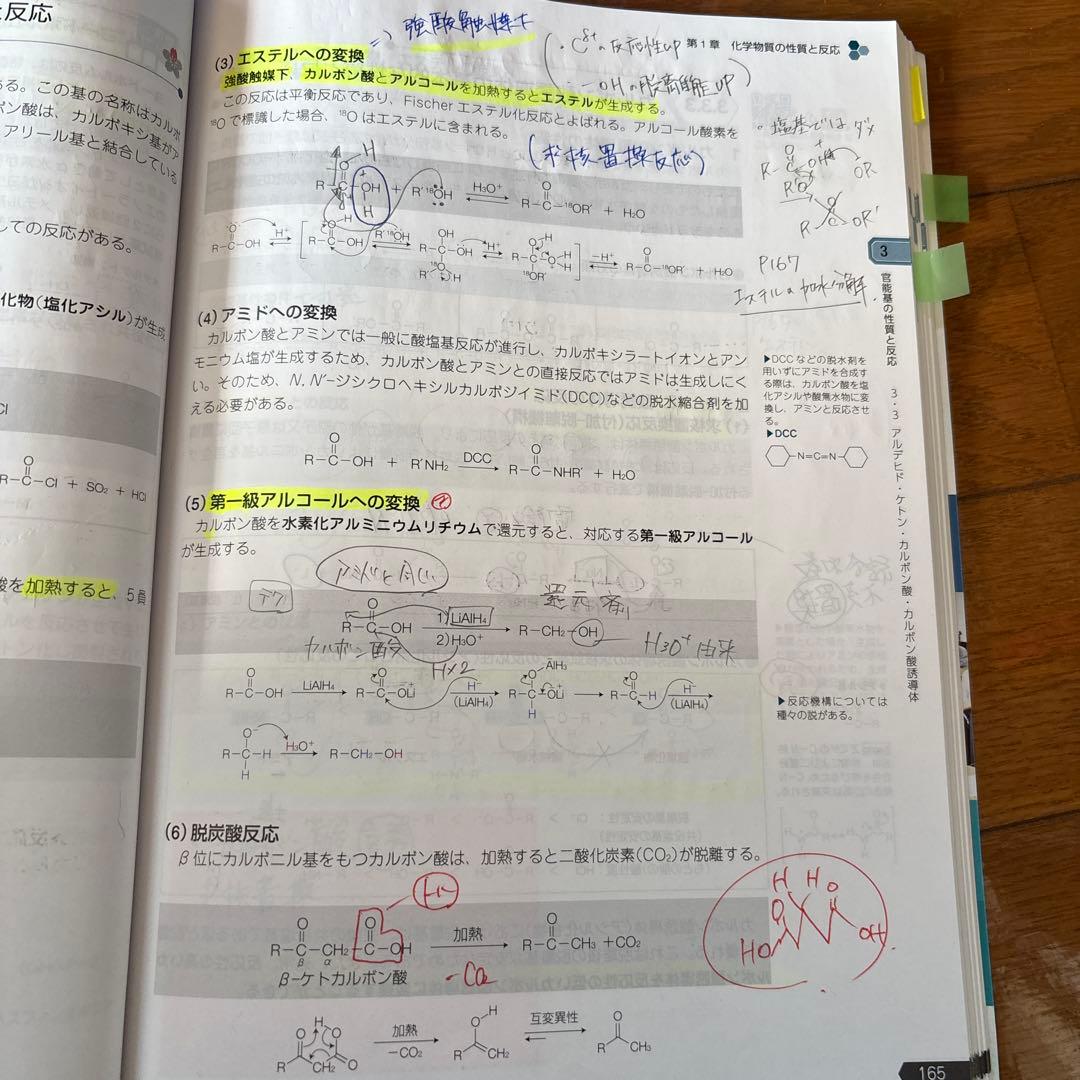 と反応
第1章 化学物質の性質と反応
⇒ 強酸触媒下
(・Cδ+の反応性UP
・-OHの脱離能UP)
(3) エステルへの変換
強酸触媒下、カルボン酸とアルコールを加熱するとエステルが生成する。
この反応は平衡反応であり、Fischer エステル化反応とよばれる。アルコール酸素を
¹⁸O で標識した場合、¹⁸O はエステルに含まれる。
(求核置換反応)
・塩基ではダメ
R-C-OH + R'¹⁸OH H₃O⁺ R-C-¹⁸OR' + H₂O
R-C-OH H⁺ R-C-OH R'¹⁸OH H⁺ -H⁺ R-C-¹⁸OR' + H₂O
P167
エステルの加水分解
3
官能基の性質と反応
3・3 アルデヒド・ケトン・カルボン酸・カルボン酸誘導体
ある。この基の名称はカルボ
ボン酸は、カルボキシ基がア
アリール基と結合している
しての反応がある。
化物(塩化アシル)が生成
R-C-Cl + SO₂ + HCl
酸を加熱すると、5員
(4) アミドへの変換
カルボン酸とアミンでは一般に酸塩基反応が進行し、カルボキシラートイオンとアン
モニウム塩が生成するため、カルボン酸とアミンとの直接反応ではアミドは生成しにく
い。そのため、N, N'-ジシクロヘキシルカルボジイミド(DCC)などの脱水縮合剤を加
える必要がある。
▶DCC などの脱水剤を
用いずにアミドを合成す
る際は、カルボン酸を塩
化アシルや酸無水物に変
換し、アミンと反応させ
る。
▶DCC
N=C=N
R-C-OH + R'NH₂ DCC R-C-NHR' + H₂O
(5) 第一級アルコールへの変換
カルボン酸を水素化アルミニウムリチウムで還元すると、対応する第一級アルコール
が生成する。
アミドと同じ
還元剤
R-C-OH 1) LiAlH₄ 2) H₃O⁺ R-CH₂-OH
カルボン酸
H×2
H₃O⁺由来
R-C-OH LiAlH₄ R-C-OLi H⁻ (LiAlH₄) AlH₃ R-C-OLi R-C-H H⁻ (LiAlH₄)
▶反応機構については
種々の説がある。
R-C-H H₃O⁺ R-CH₂-OH
(6) 脱炭酸反応
β位にカルボニル基をもつカルボン酸は、加熱すると二酸化炭素(CO₂)が脱離する。
R-C-CH₂-C-OH 加熱 R-C-CH₃ + CO₂
β α
-CO₂
β-ケトカルボン酸
加熱 -CO₂ 互変異性
165